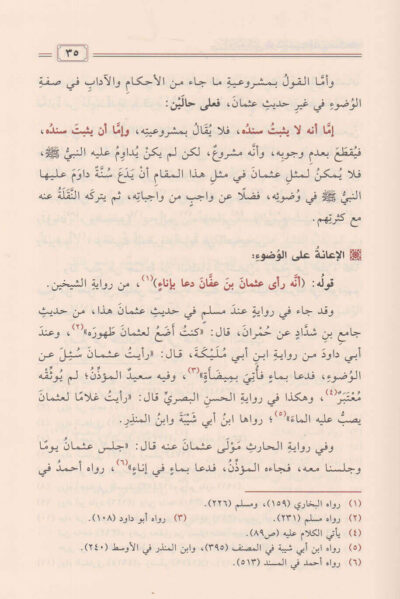 ٣٥
وأمَّا القولُ بمشروعيةِ ما جاء من الأحكامِ والآدابِ في صفةِ
الوُضوءِ في غيرِ حديثِ عثمانَ، فعلى حالَيْن:
إمَّا أنه لا يثبتُ سندُه، فلا يُقالُ بمشروعيتِه، وإمَّا أن يثبتَ سندُه،
فيُقطَعَ بعدمِ وجوبِه، وأنَّه مشروعٌ، لكن لم يكنْ يُداوِمُ عليه النبيُّ ﷺ،
فلا يُمكنُ لمثلِ عثمانَ في مثلِ هذا المقامِ أنْ يَدَعَ سُنَّةً داوَمَ عليها
النبيُّ ﷺ في وُضوئِه، فضلًا عن واجبٍ من واجباتِه، ثم يتركَه النَّقَلَةُ عنه
مع كثرتِهم.
الإعانةُ على الوُضوءِ:
قولُه: (أنَّه رأى عثمانَ بنَ عفَّانَ دعا بإناءٍ)(١)، من روايةِ الشيخين.
وقد جاء في روايةٍ عندَ مسلمٍ في حديثِ عثمانَ هذا، من حديثِ
جامعِ بنِ شدَّادٍ عن حُمْرانَ، قال: «كنتُ أضَعُ لعثمانَ طَهورَه»(٢)، وعندَ
أبي داودَ من روايةِ ابنِ أبي مُلَيْكَةَ، قال: «رأيتُ عثمانَ سُئِلَ عن
الوُضوءِ، فدعا بماءٍ فأُتِيَ بمِيضَأةٍ»(٣)، وفيه سعيدٌ المؤذِّنُ؛ لم يُوثِّقْه
مُعْتَبَرٌ(٤)، وهكذا في روايةِ الحسنِ البصريِّ قال: «رأيتُ غلامًا لعثمانَ
يصبُّ عليه الماءَ»(٥)؛ رواها ابنُ أبي شَيْبَةَ وابنُ المنذرِ.
وفي روايةِ الحارثِ مَوْلَى عثمانَ عنه قال: «جلس عثمانُ يومًا
وجلسنا معه، فجاءه المؤذِّنُ، فدعا بماءٍ في إناءٍ»(٦)، رواه أحمدُ في
(١) رواه البخاري (١٥٩)، ومسلم (٢٢٦).
(٢) رواه مسلم (٢٣١). (٣) رواه أبو داود (١٠٨).
(٤) يأتي الكلام عليه (ص٨٩).
(٥) رواه ابن أبي شيبة في المصنف (٣٩٥)، وابن المنذر في الأوسط (٢٤٠).
(٦) رواه أحمد في المسند (٥١٣).